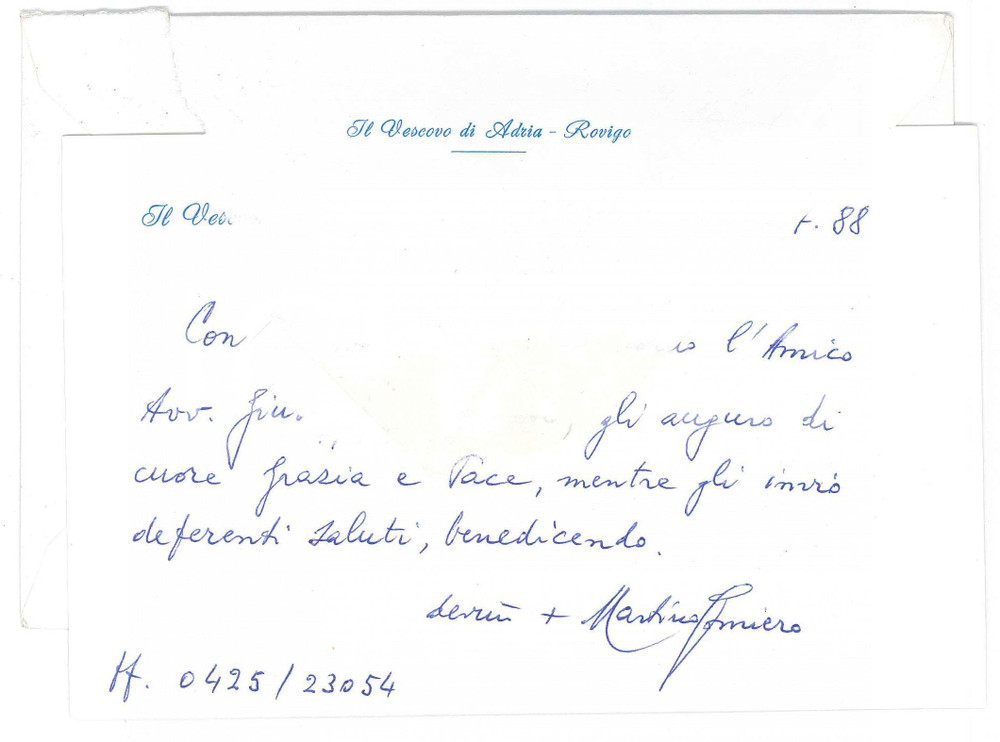 Il Vescovo di Adria - Rovigo
Il Ves
88
Con l'Amico
Avv. Giu. , gli auguro di
cuore Grazia e Pace, mentre gli invio
deferenti saluti, benedicendo.
+ Martino Gomiero
0425/23054